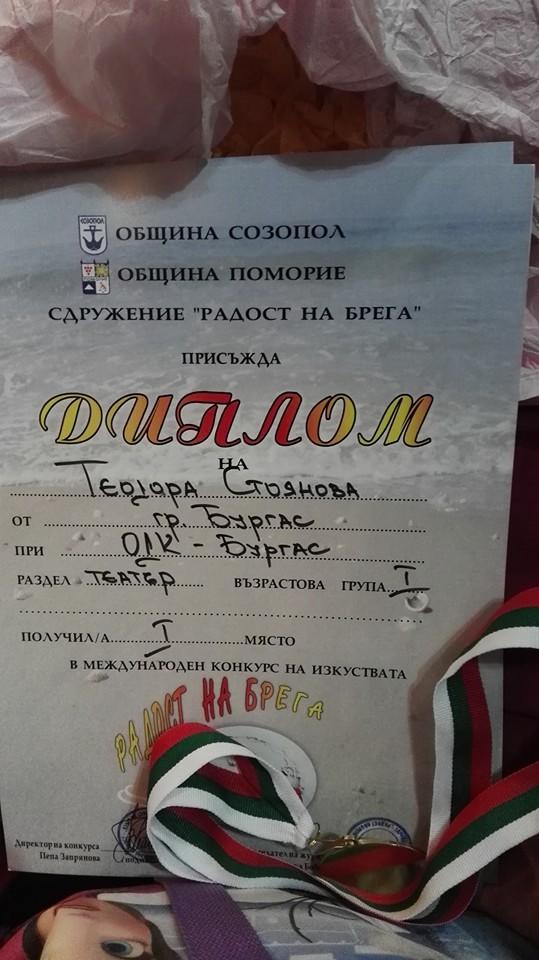 СОЗОПОЛ
ОБЩИНА СОЗОПОЛ
ОБЩИНА ПОМОРИЕ
СДРУЖЕНИЕ "РАДОСТ НА БРЕГА"
ПРИСЪЖДА
ДИПЛОМ
НА
Теодора Стоянова
ОТ гр. Бургас
ПРИ ОЛК - Бургас
РАЗДЕЛ театър ВЪЗРАСТОВА ГРУПА I
ПОЛУЧИЛ/А I МЯСТО
В МЕЖДУНАРОДЕН КОНКУРС НА ИЗКУСТВАТА
РАДОСТ НА БРЕГА
Директор на конкурса
Пепа Запрянова